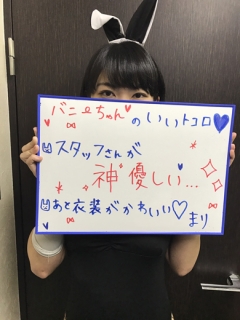 バニーちゃんのいいトコロ♥
スタッフさんが
神優しい…
あと衣装がかわいい♡
まり